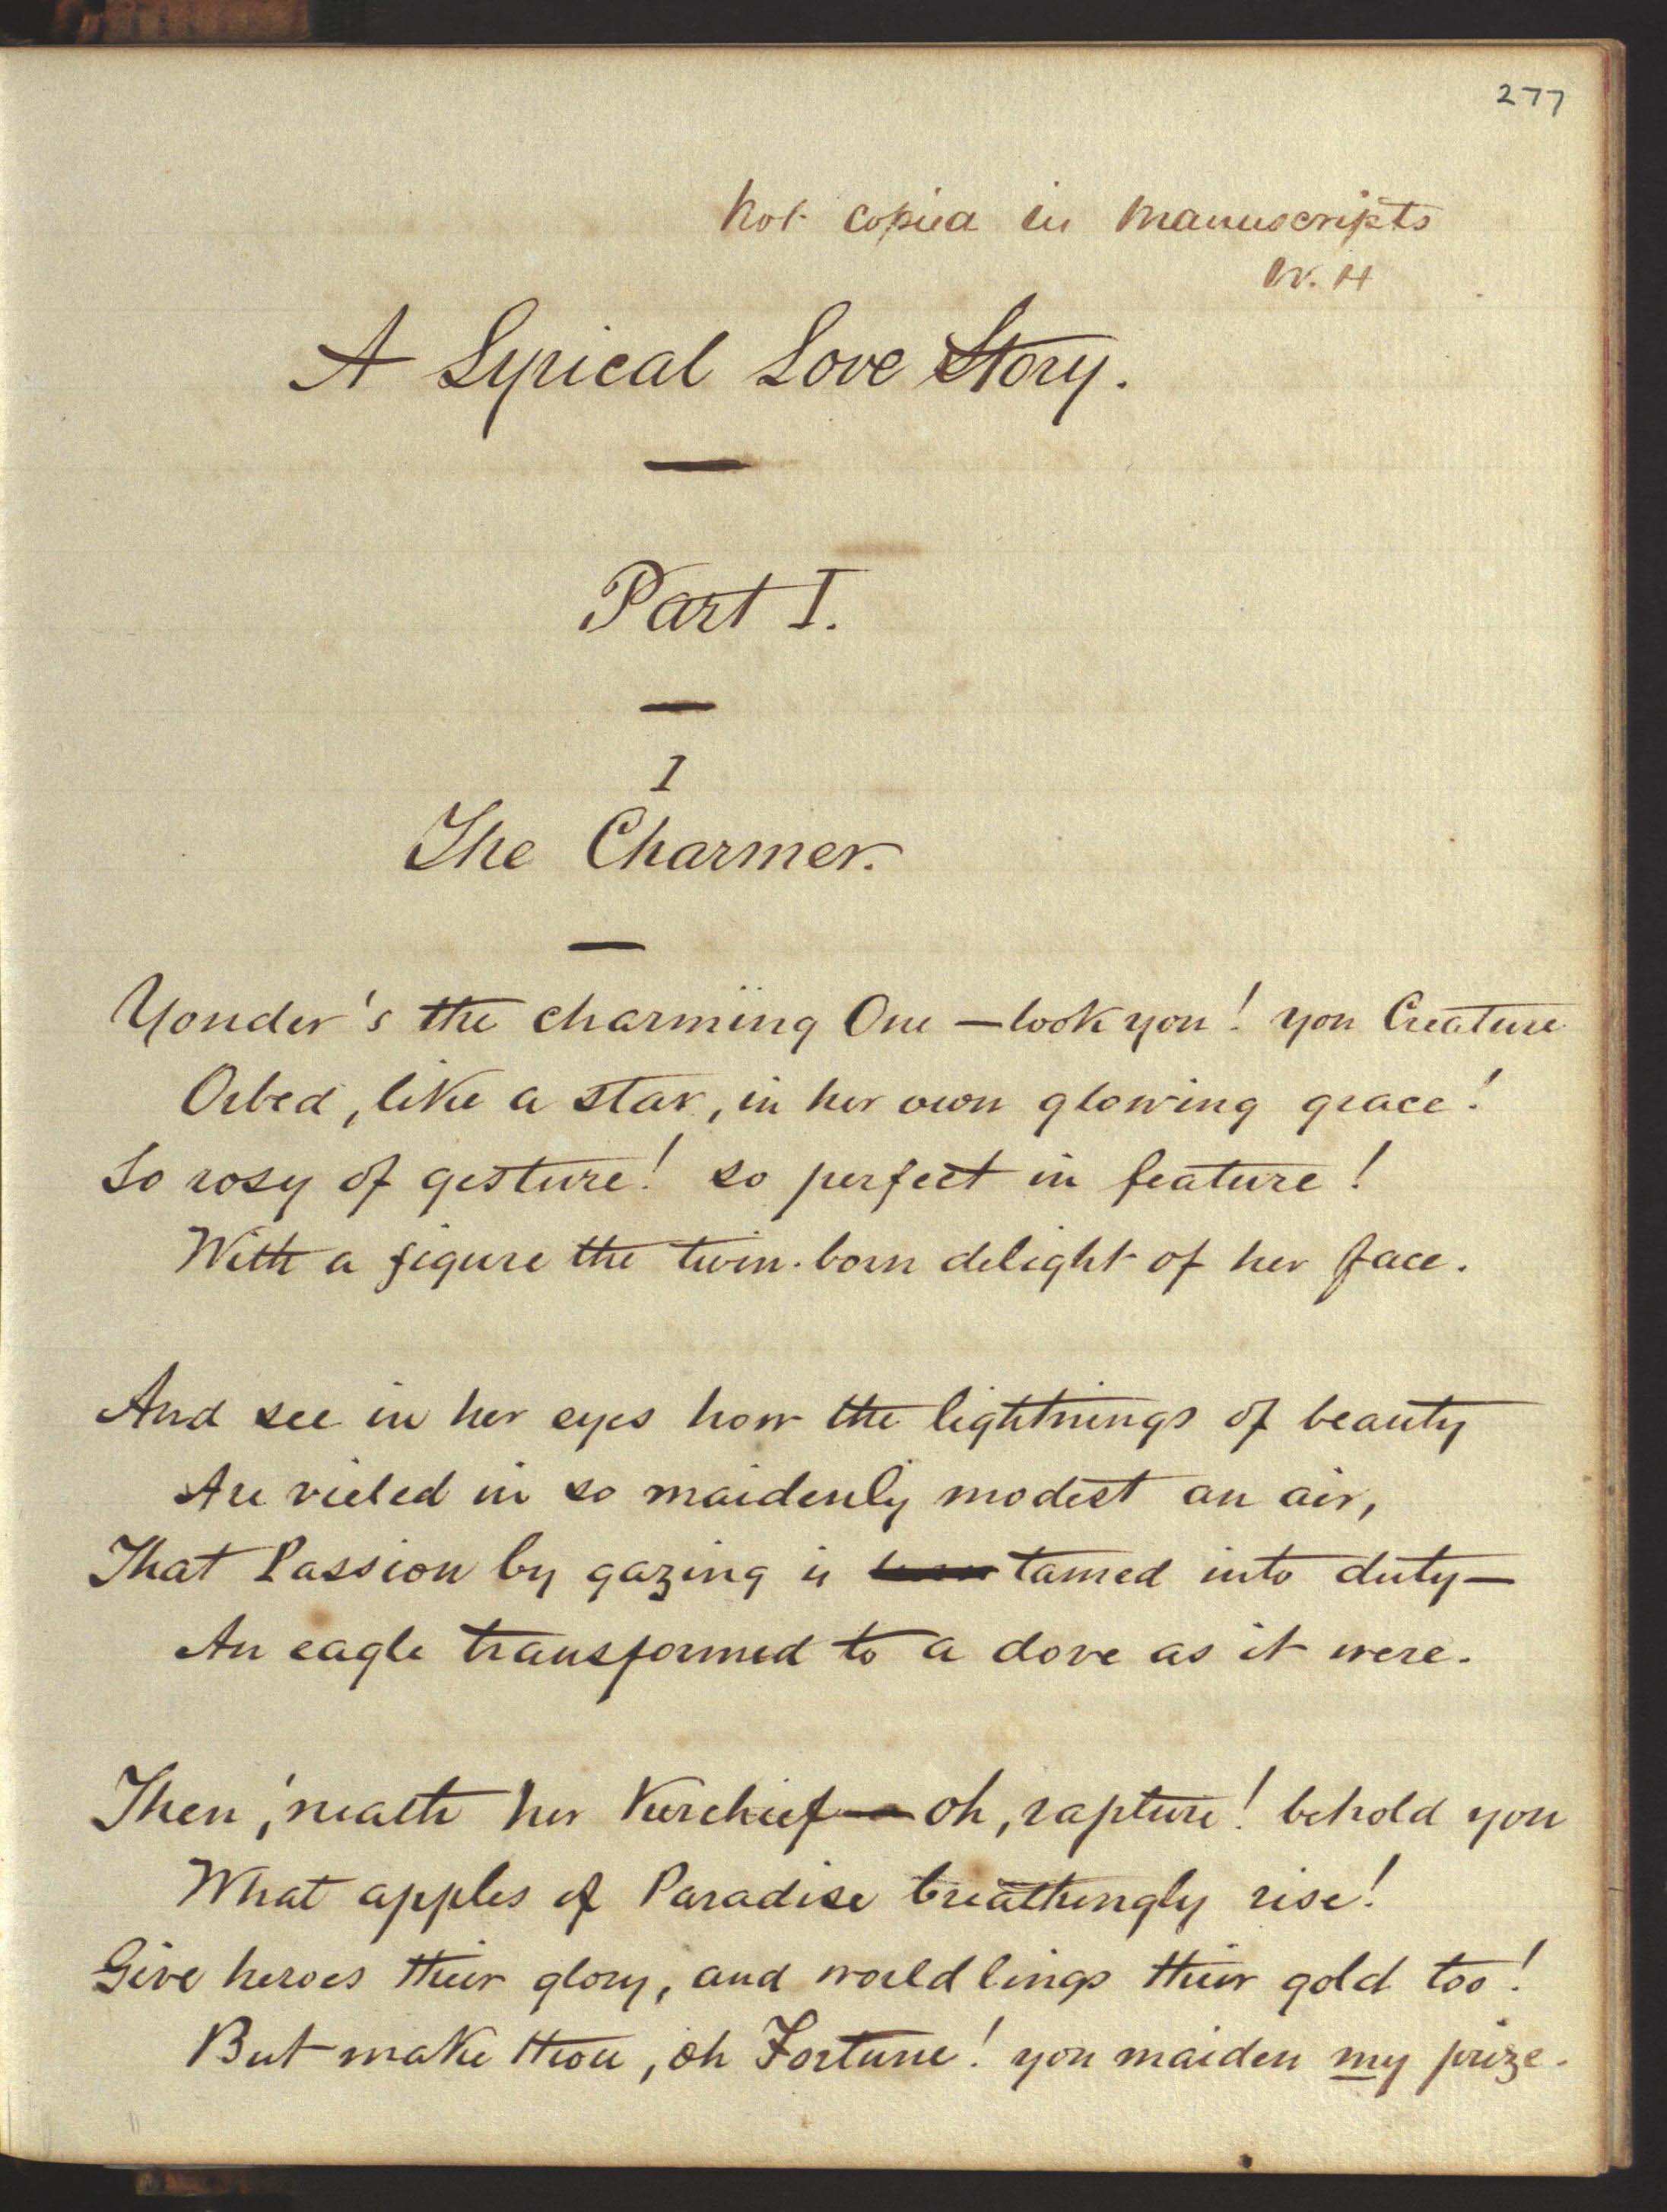 277
Not copied in Manuscripts
W. H
A Lyrical Love Story.
Part I.
1
The Charmer.
Yonder's the charming One — look you! yon Creature
Orbed, like a star, in her own glowing grace!
So rosy of gesture! so perfect in feature!
With a figure the twin-born delight of her face.
And see in her eyes how the lightnings of beauty
Are vieled in so maidenly modest an air,
That Passion by gazing is tamed into duty—
An eagle transformed to a dove as it were.
Then, 'neath her Kerchief — oh, rapture! behold you
What apples of Paradise breathingly rise!
Give heroes their glory, and worldlings their gold too!
But make thou, oh Fortune! yon maiden my prize.